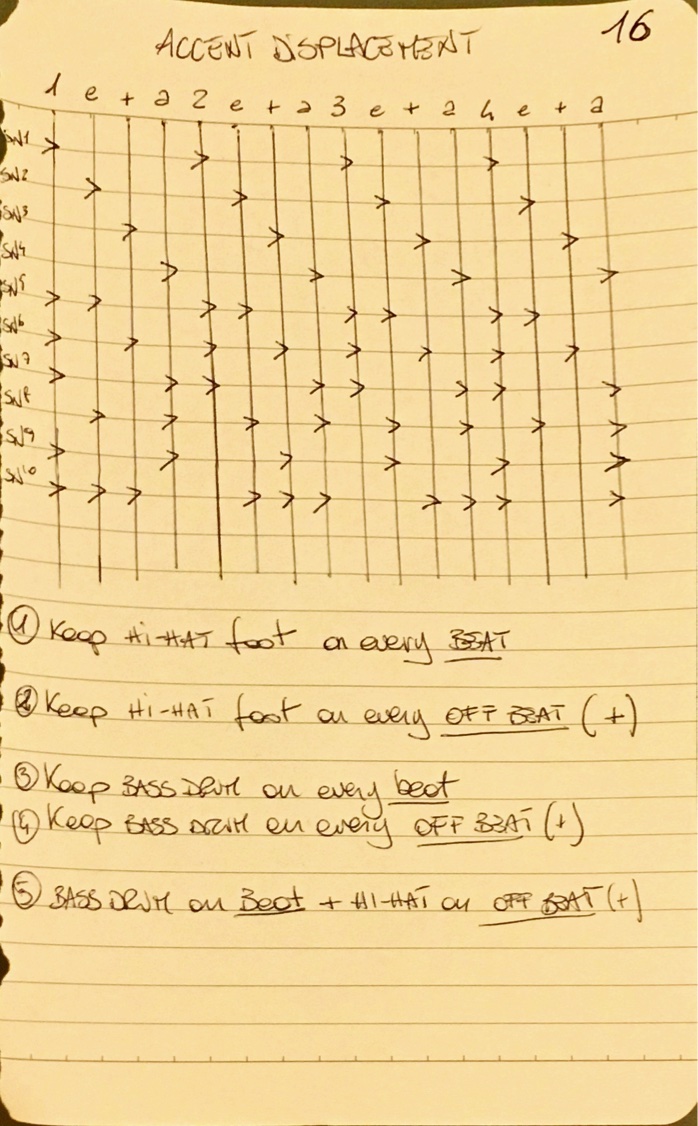 16
ACCENT DISPLACEMENT
1 e + a 2 e + a 3 e + a 4 e + a
SN1 > > > >
SN2 > > > >
SN3 > > > >
SN4 > > > >
SN5 > > > > > > > >
SN6 > > > > > > > >
SN7 > > > > > > > >
SN8 > > > > > > > >
SN9 > > > > > >
SN10 > > > > > > > > > >
① Keep Hi-HAT foot on every BEAT
② Keep Hi-HAT foot on every OFF BEAT (+)
③ Keep BASS DRUM on every beat
④ Keep BASS DRUM on every OFF BEAT (+)
⑤ BASS DRUM on Beat + HI-HAT on OFF BEAT (+)